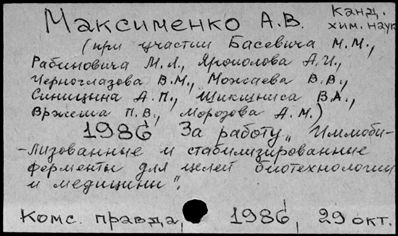 Максименко А.В. Канд. хим. наук
(при участии Басевича М.М.,
Рабиновича М.Л., Ярополова А.И.,
Черноглазова В.М., Можаева В.В.,
Синицына А.П., Шикшниса В.А.,
Вржеща П.В., Морозова А.М.)
1986 За работу „Иммоби-
-лизованные и стабилизированные
ферменты для целей биотехнологии
и медицины".
Комс. правда, 1986, 29 окт.